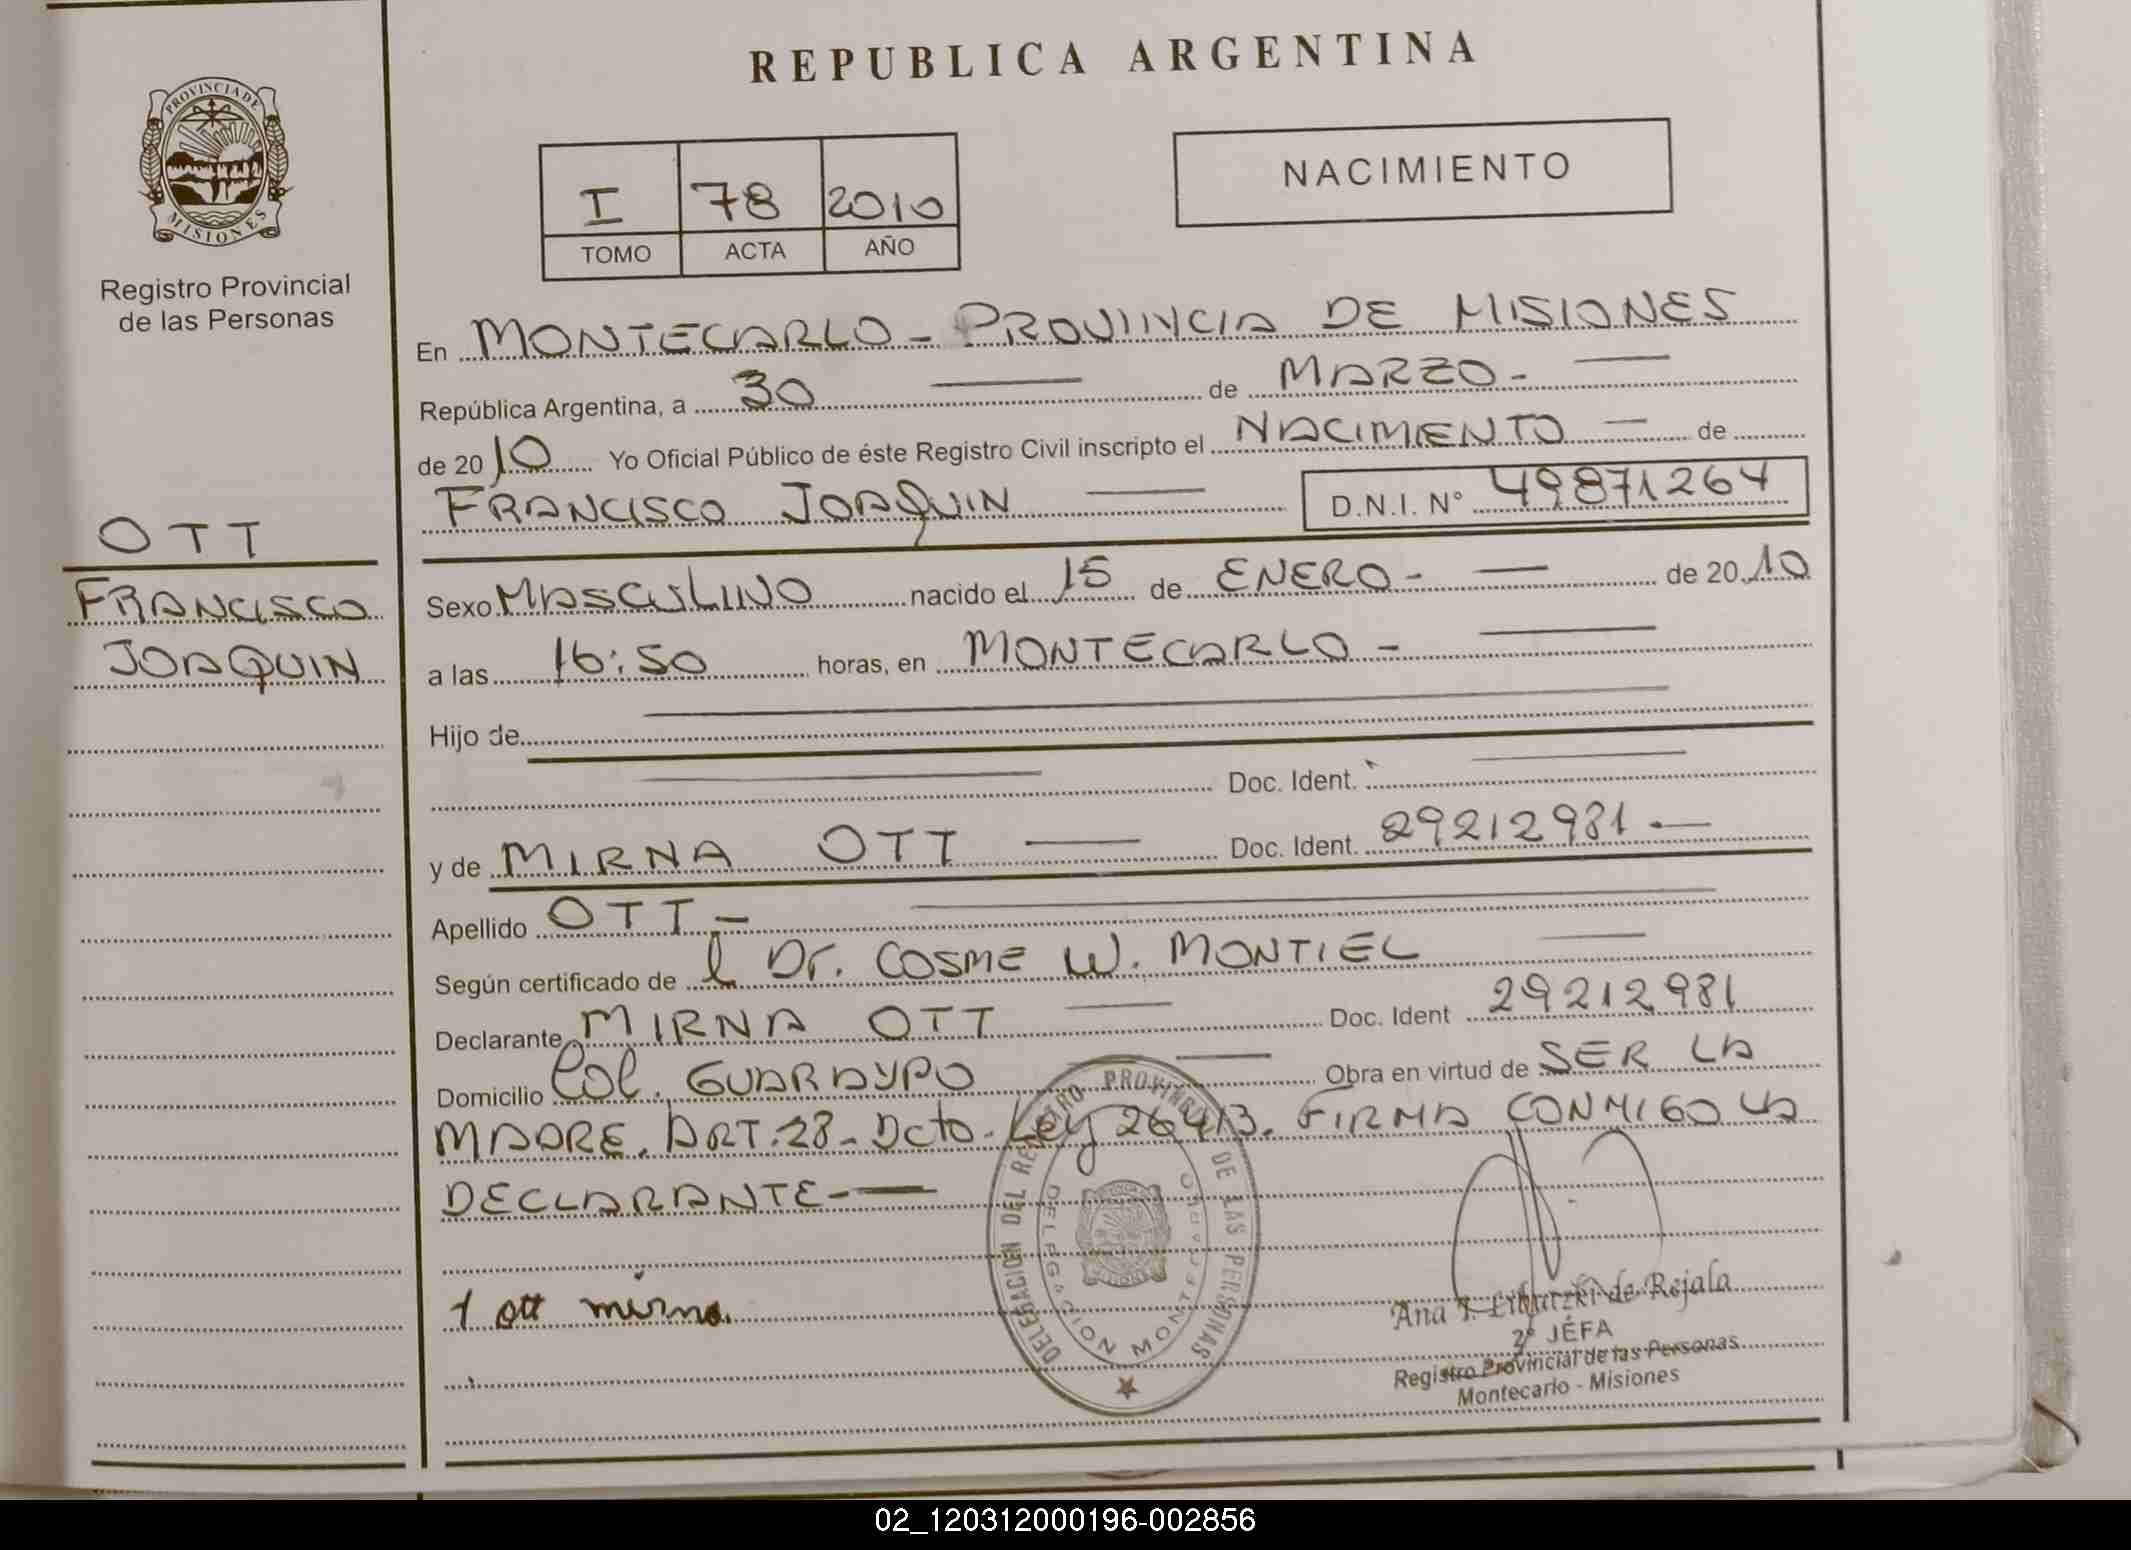 REPUBLICA ARGENTINA
PROVINCIA DE
MISIONES
Registro Provincial
de las Personas
I 78 2010
TOMO ACTA AÑO
NACIMIENTO
En MONTECARLO - PROVINCIA DE MISIONES
República Argentina, a 30 de MARZO -
de 2010 Yo Oficial Público de éste Registro Civil inscripto el NACIMIENTO de
FRANCISCO JOAQUIN D.N.I. Nº 49871264
OTT
FRANCISCO
JOAQUIN
Sexo MASCULINO nacido el 15 de ENERO - de 2010
a las 16:50 horas, en MONTECARLO -
Hijo de
Doc. Ident.
y de MIRNA OTT Doc. Ident. 29212981.-
Apellido OTT -
Según certificado de l Dr. COSME W. MONTIEL
Declarante MIRNA OTT Doc. Ident 29212981
Domicilio Col. GUARAYPO Obra en virtud de SER LA
MADRE. ART. 28 - Dcto - Ley 26413. FIRMA CONMIGO LA
DECLARANTE -
1 ott mirna.
DELEGACION DEL REGISTRO PROVINCIAL DE LAS PERSONAS
DELEGACION MONTECARLO
Ana de Rejala
2º JEFA
Registro Provincial de las Personas
Montecarlo - Misiones
02_120312000196-002856